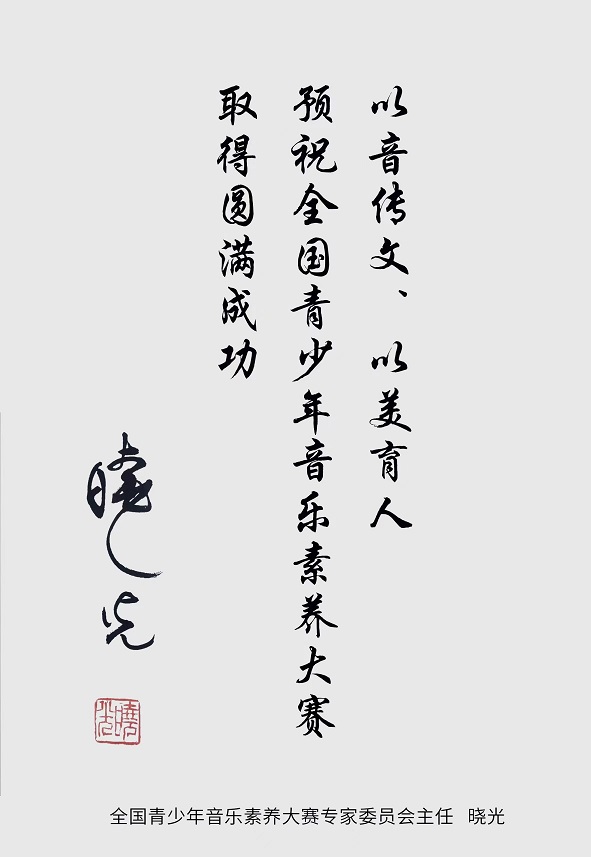 以音传文、以美育人
预祝全国青少年音乐素养大赛
取得圆满成功
晓光
晓光
全国青少年音乐素养大赛专家委员会主任 晓光